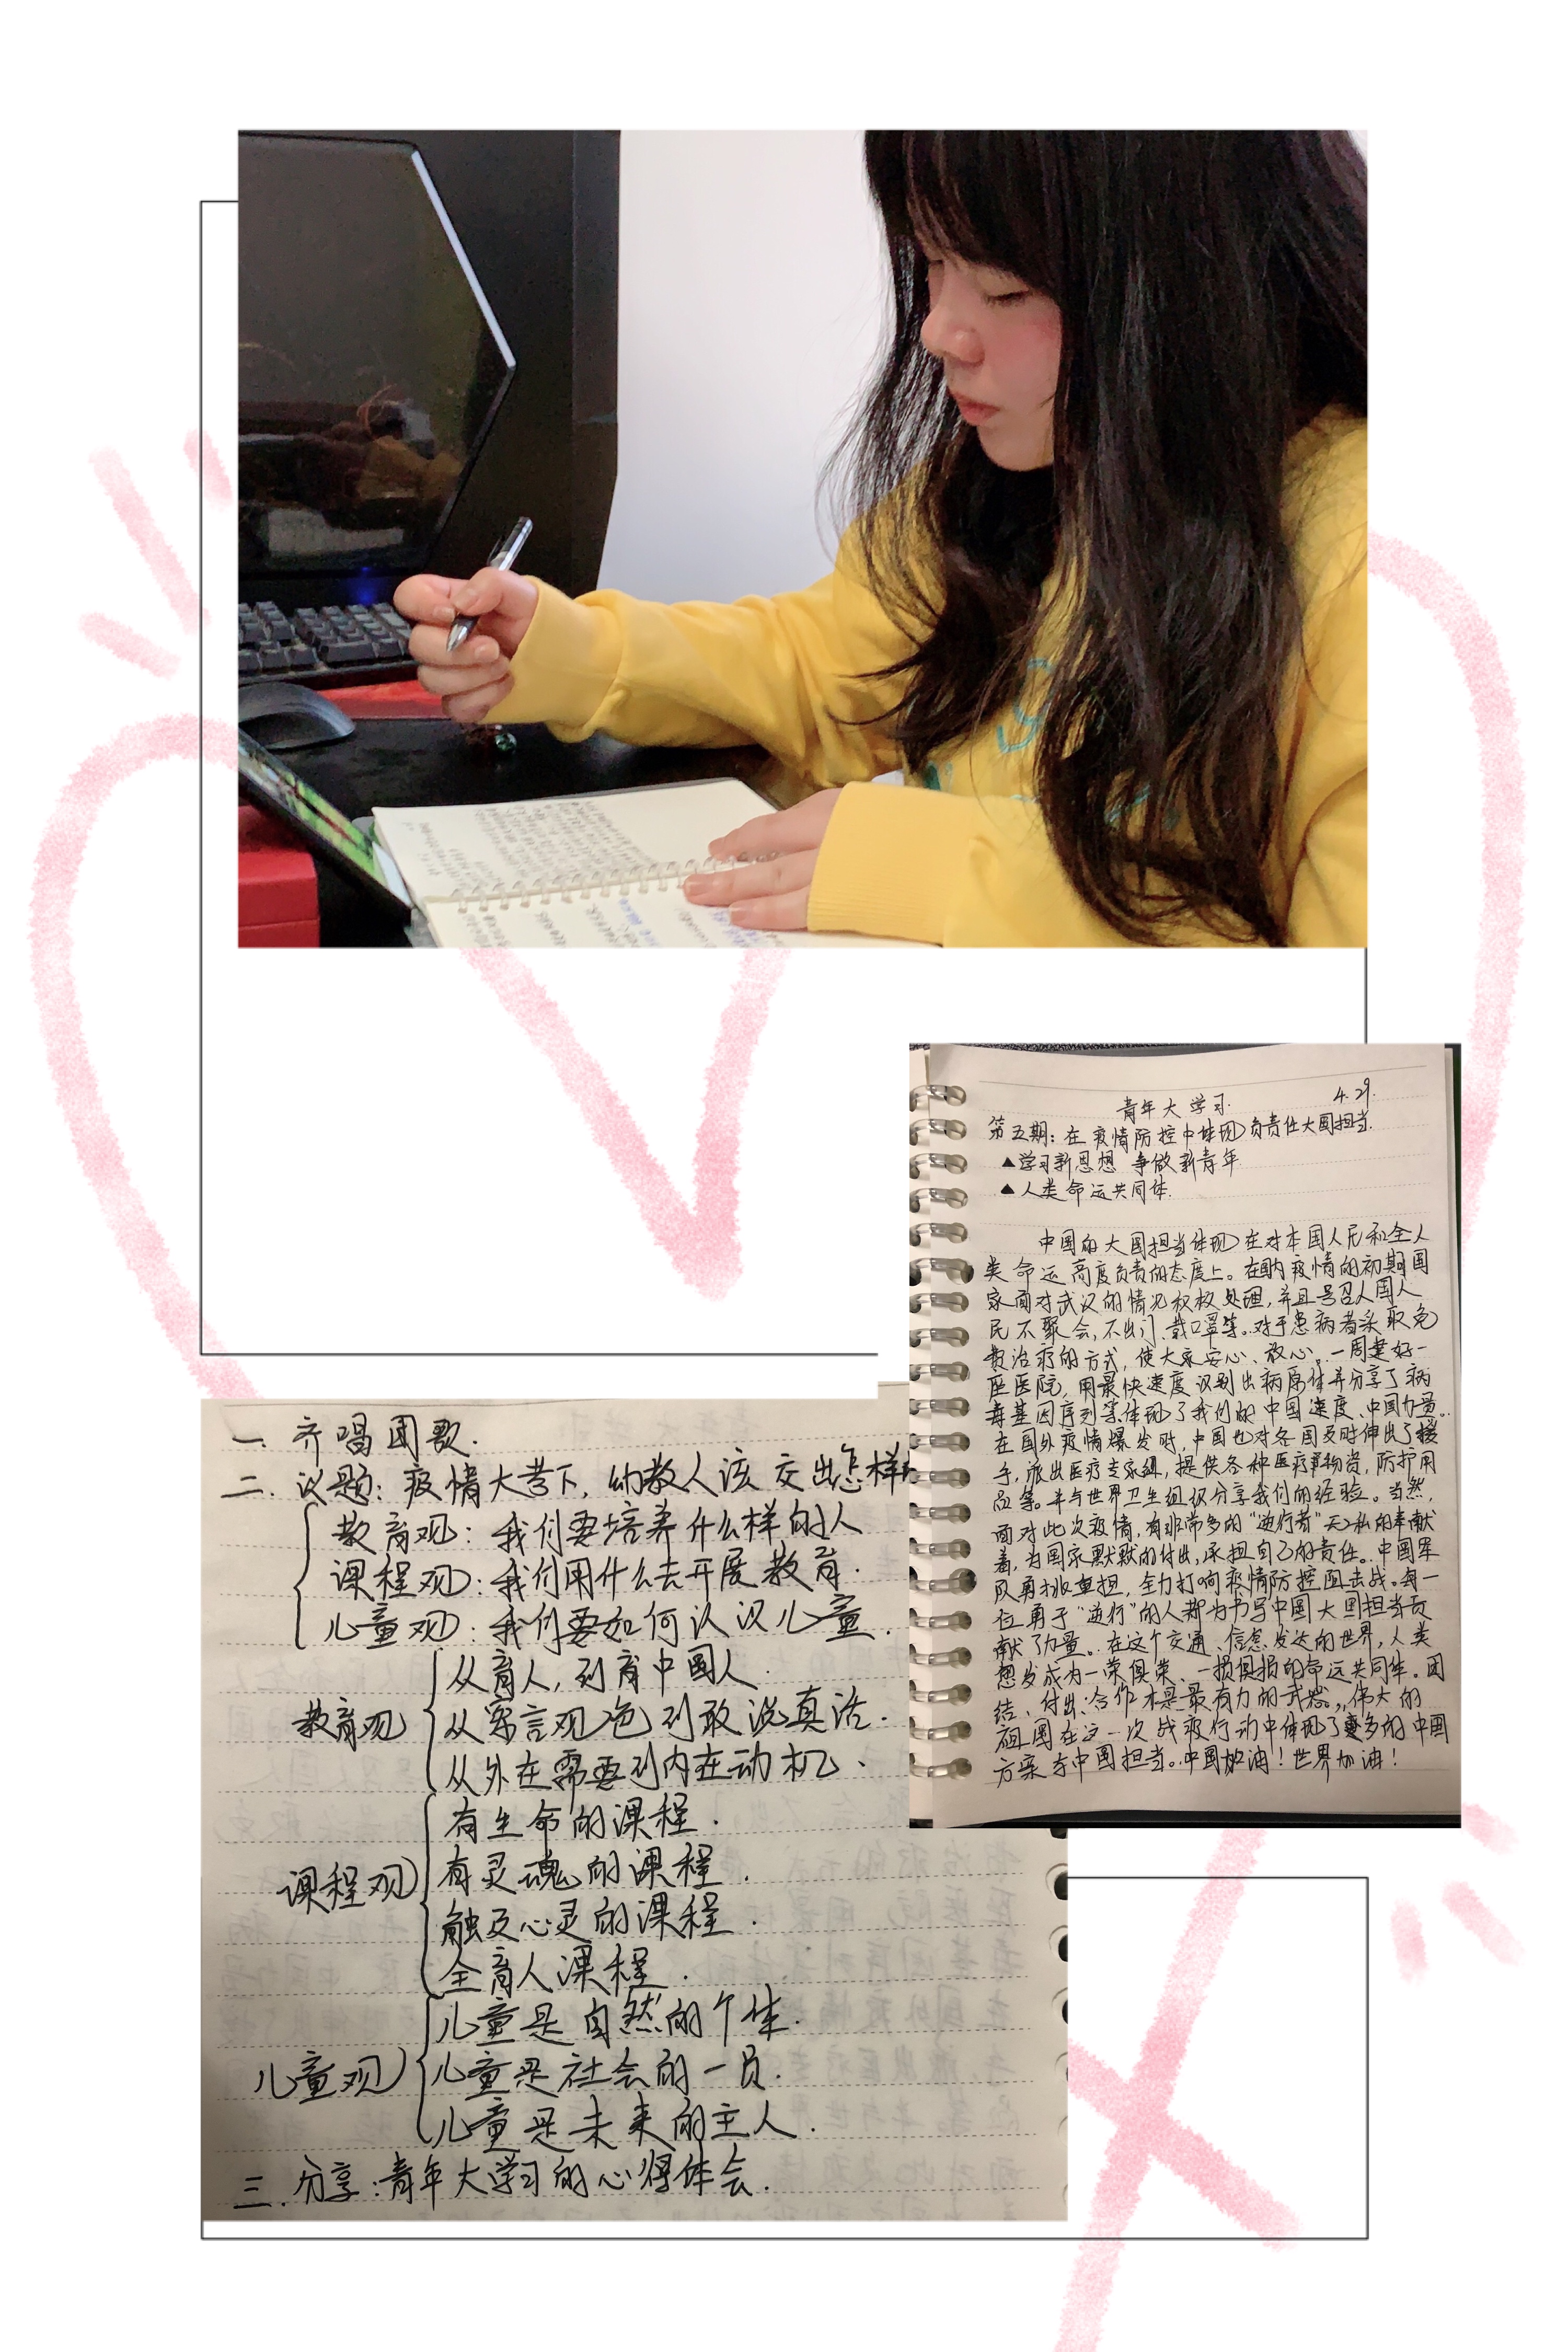 青年大学习. 4.29.
第五期：在疫情防控中体现负责任大国担当.
▲学习新思想 争做新青年
▲人类命运共同体.
中国的大国担当体现在对本国人民和全人
类命运高度负责的态度上。在国内疫情的初期国
家面对武汉的情况积极处理，并且号召人国人
民不聚会，不出门、戴口罩等。对于患病者采取免
费治疗的方式，使大家安心、放心。一周建好一
座医院，用最快速度识别出病原体并分享了病
毒基因序列等体现了我们的中国速度、中国力量。
在国外疫情爆发时，中国也对各国及时伸出了援
手，派出医疗专家组，提供各种医疗物资，防护用
品等。并与世界卫生组织分享我们的经验。当然，
面对此次疫情，有非常多的“逆行者”无私的奉献
着，为国家默默的付出，承担自己的责任。中国军
队勇挑重担，全力打响疫情防控阻击战。每一
位勇于“逆行”的人都为书写中国大国担当贡
献了力量。在这个交通、信息发达的世界，人类
想发成为一荣俱荣、一损俱损的命运共同体。团
结、付出、合作才是最有力的武器。伟大的
祖国在这一次战疫行动中体现了更多的中国
方案与中国担当。中国加油！世界加油！
一. 齐唱团歌.
二. 议题：疫情大考下，幼教人该交出怎样
教育观：我们要培养什么样的人
课程观：我们用什么去开展教育.
儿童观：我们要如何认识儿童.
教育观
从育人，到育中国人.
从察言观色到敢说真话.
从外在需要到内在动机.
课程观
有生命的课程.
有灵魂的课程.
触及心灵的课程.
全育人课程.
儿童观
儿童是自然的个体.
儿童是社会的一员.
儿童是未来的主人.
三. 分享：青年大学习的心得体会.